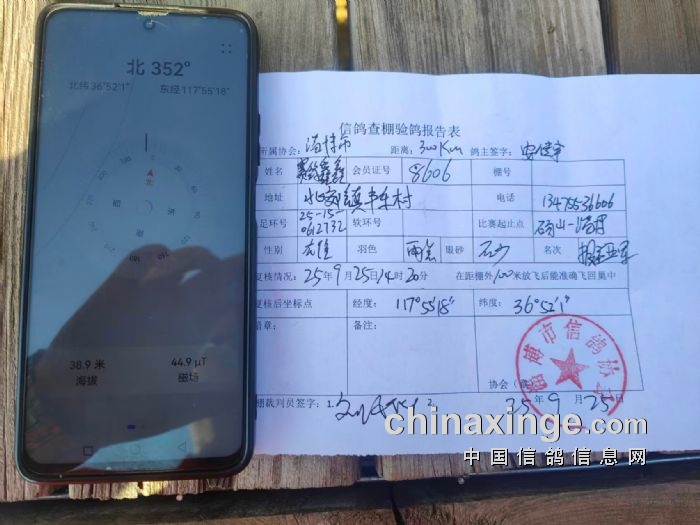 北 352°
北纬 36°52'1" 东经 117°55'18"
北
38.9 米 44.9 μT
海拔 磁场
信鸽查棚验鸽报告表
所属协会: 淄博市 距离: 300Km 鸽主签字:
姓名 会员证号 8606 棚号
地址 北郊镇丰车村 电话
足环号 25-15-0612732 软环号 比赛起止点 砀山—淄博
性别 雄 羽色 雨点 眼砂 石沙 名次
复核情况: 25年9月25日14时20分 在距棚外100米放飞后能准确飞回巢中
复核后坐标点 经度: 117°55'18" 纬度: 36°52'1"
盖章: 备注:
淄博市信鸽协会
协会(章)
棚裁判员签字: 1. 2. 25年9月25日
chinaxinge.com
中国信鸽信息网